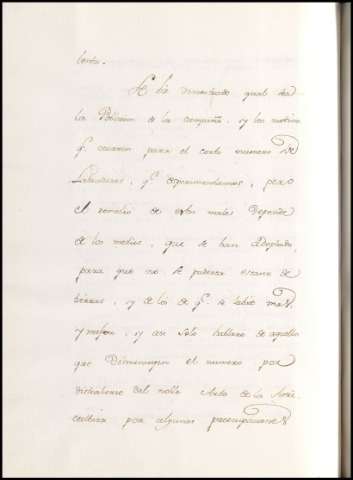 lento.
Se há mostrado qual sea
la Poblacion de la campaña, y los motivos
q.e ocurren para el corto numero de
Labradores, q.e experimentamos, pero
el remedio de estos males depende
de los medios, que se han adoptado,
para que no se padezca escasez de
tierras, y de los de q.e se labre mas,
y mejor, y asi solo hablaré de aquello
que disminuyen el numero por
distraherse del noble Arte de la Agri
cultura por algunas preocupaciones